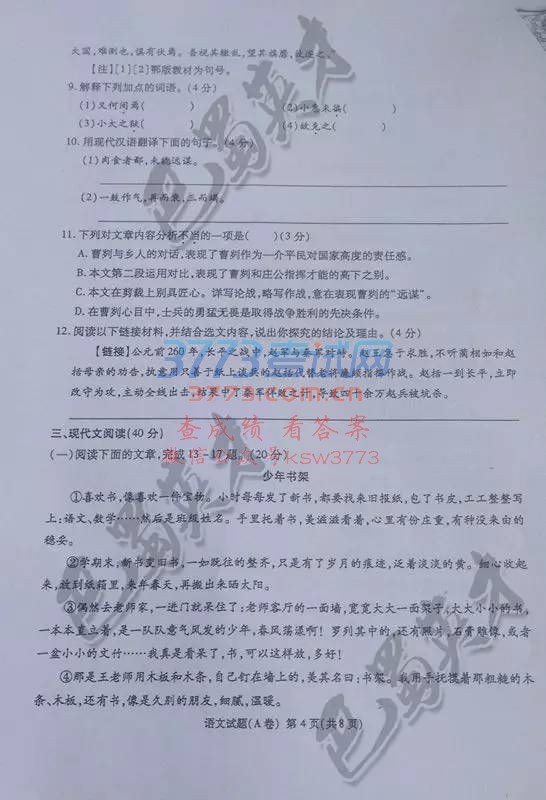 大国,难测也,惧有伏焉。吾视其辙乱,望其旗靡,故逐之。”
【注】[1][2]鄂版教材为句号。
9.解释下列加点的词语。(4分)
(1)又何间焉( ) (2)小惠未徧( )
(3)小大之狱( ) (4)故克之( )
10.用现代汉语翻译下面的句子。(4分)
(1)肉食者鄙,未能远谋。
(2)一鼓作气,再而衰,三而竭。
11.下列对文章内容分析不当的一项是( )(3分)
A.曹刿与乡人的对话,表现了曹刿作为一介平民对国家高度的责任感。
B.本文第二段运用对比,表现了曹刿和庄公指挥才能的高下之别。
C.本文在剪裁上别具匠心。详写论战,略写作战,意在表现曹刿的“远谋”。
D.在曹刿心目中,士兵的勇猛无畏是取得战争胜利的先决条件。
12.阅读以下链接材料,并结合选文内容,说出你探究的结论及理由。(4分)
【链接】公元前260年,长平之战中,赵军与秦军对峙。赵王急于求胜,不听蔺相如和赵
括母亲的劝告,执意用只善于纸上谈兵的赵括代替老将廉颇指挥作战。赵括一到长平,立即
改守为攻,主动全线出击,结果中了秦军佯败之计,导致四十余万赵兵被坑杀。
3773考试网
3773.com.cn
查成绩 看答案
微信公众号ksw3773
三、现代文阅读(40分)
(一)阅读下面的文章,完成13-17题。(20分)
少年书架
①喜欢书,像喜欢一件宝物。小时每每发了新书,都要找来旧报纸,包了书皮,工工整整写
上:语文、数学……然后是班级姓名。手里托着书,美滋滋看着,心里有份庄重,有种没来由的
稳妥。
②学期末,新书变旧书,一如既往的整齐,只是有了岁月的痕迹,泛着淡淡的黄。细心收起
来,放到纸箱里,来年春天,再搬出来晒太阳。
③偶然去老师家,一进门就呆住了:老师客厅的一面墙,宽宽大大一面架子,大大小小的书,
一本本直立着,是一队队意气风发的少年,春风荡漾啊!罗列其中的,还有照片,石膏雕像,或者
一盆小小的文竹……我真是看呆了,书,可以这样放,多好!
④那是王老师用木板和木条,自己钉在墙上的,美其名曰:书架。我用手托摸着那粗糙的木
条、木板,还有书,像是久别的朋友,细腻,温暖。
语文试题(A卷) 第4页(共8页)
巴蜀英才
巴蜀英才
巴蜀英才